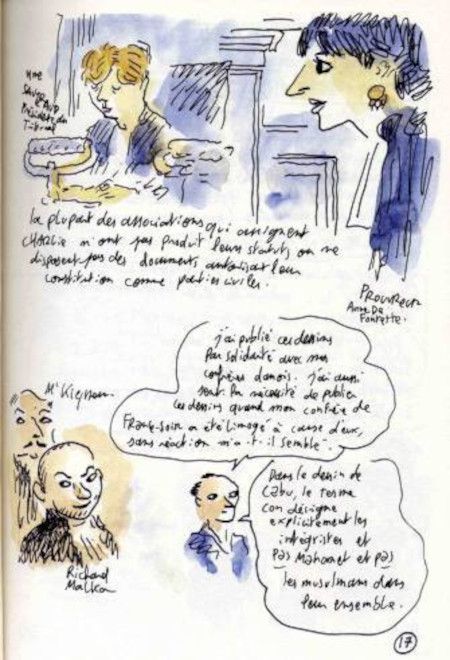 Mme
Présidente du
Tribunal
la plupart des associations qui assignent
Charlie n'ont pas produit leurs statuts, ou ne
disposent pas des documents autorisant leur
constitution comme parties civiles.
Procureur
Anne de
Fontette.
j'ai publié ces dessins
par solidarité avec mes
confrères danois. j'ai aussi
senti la nécessité de publier
les dessins quand mon confrère de
France-Soir a été limogé à cause d'eux,
sans réaction m'a-t-il semblé".
Mᵉ
Richard
Malka
Dans le dessin de
Cabu, le terme
con désigne
explicitement les
intégristes et
pas Mahomet et pas
les musulmans dans
leur ensemble.
17